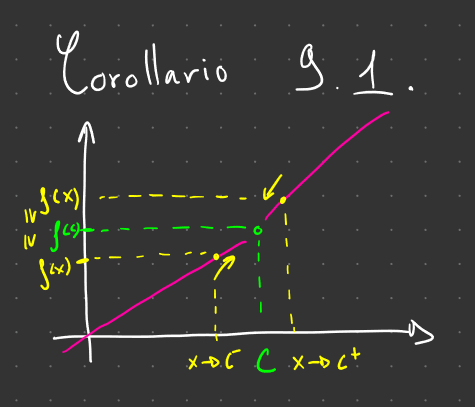 Corollario 9.1.
f(x)
≤
≤
f(c)
f(x)
x→c⁻ C x→c⁺